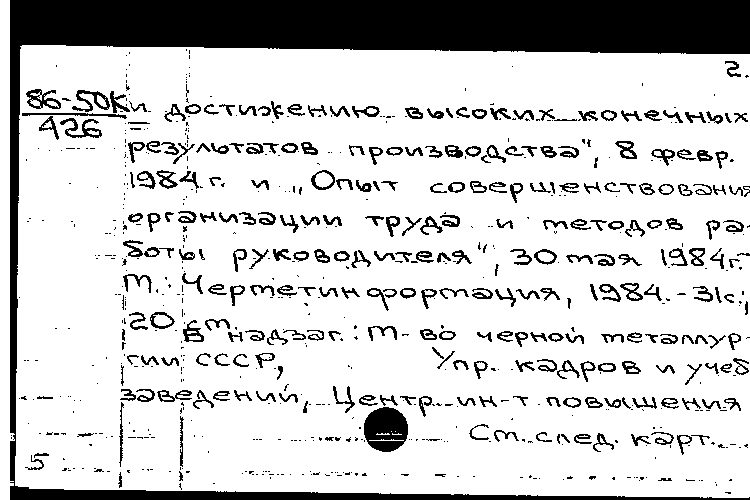 2.
86-50К
426
и достижению высоких конечных
результатов производства", 8 февр.
1984 г. и „Опыт совершенствования
организации труда и методов ра-
боты руководителя", 30 мая 1984г.-
М.: Черметинформация, 1984.-31с.;
20 см.
В надзаг.: М-во черной металлур-
гии СССР, Упр. кадров и учеб
заведений, Центр. ин-т повышения
См. след. карт.
5